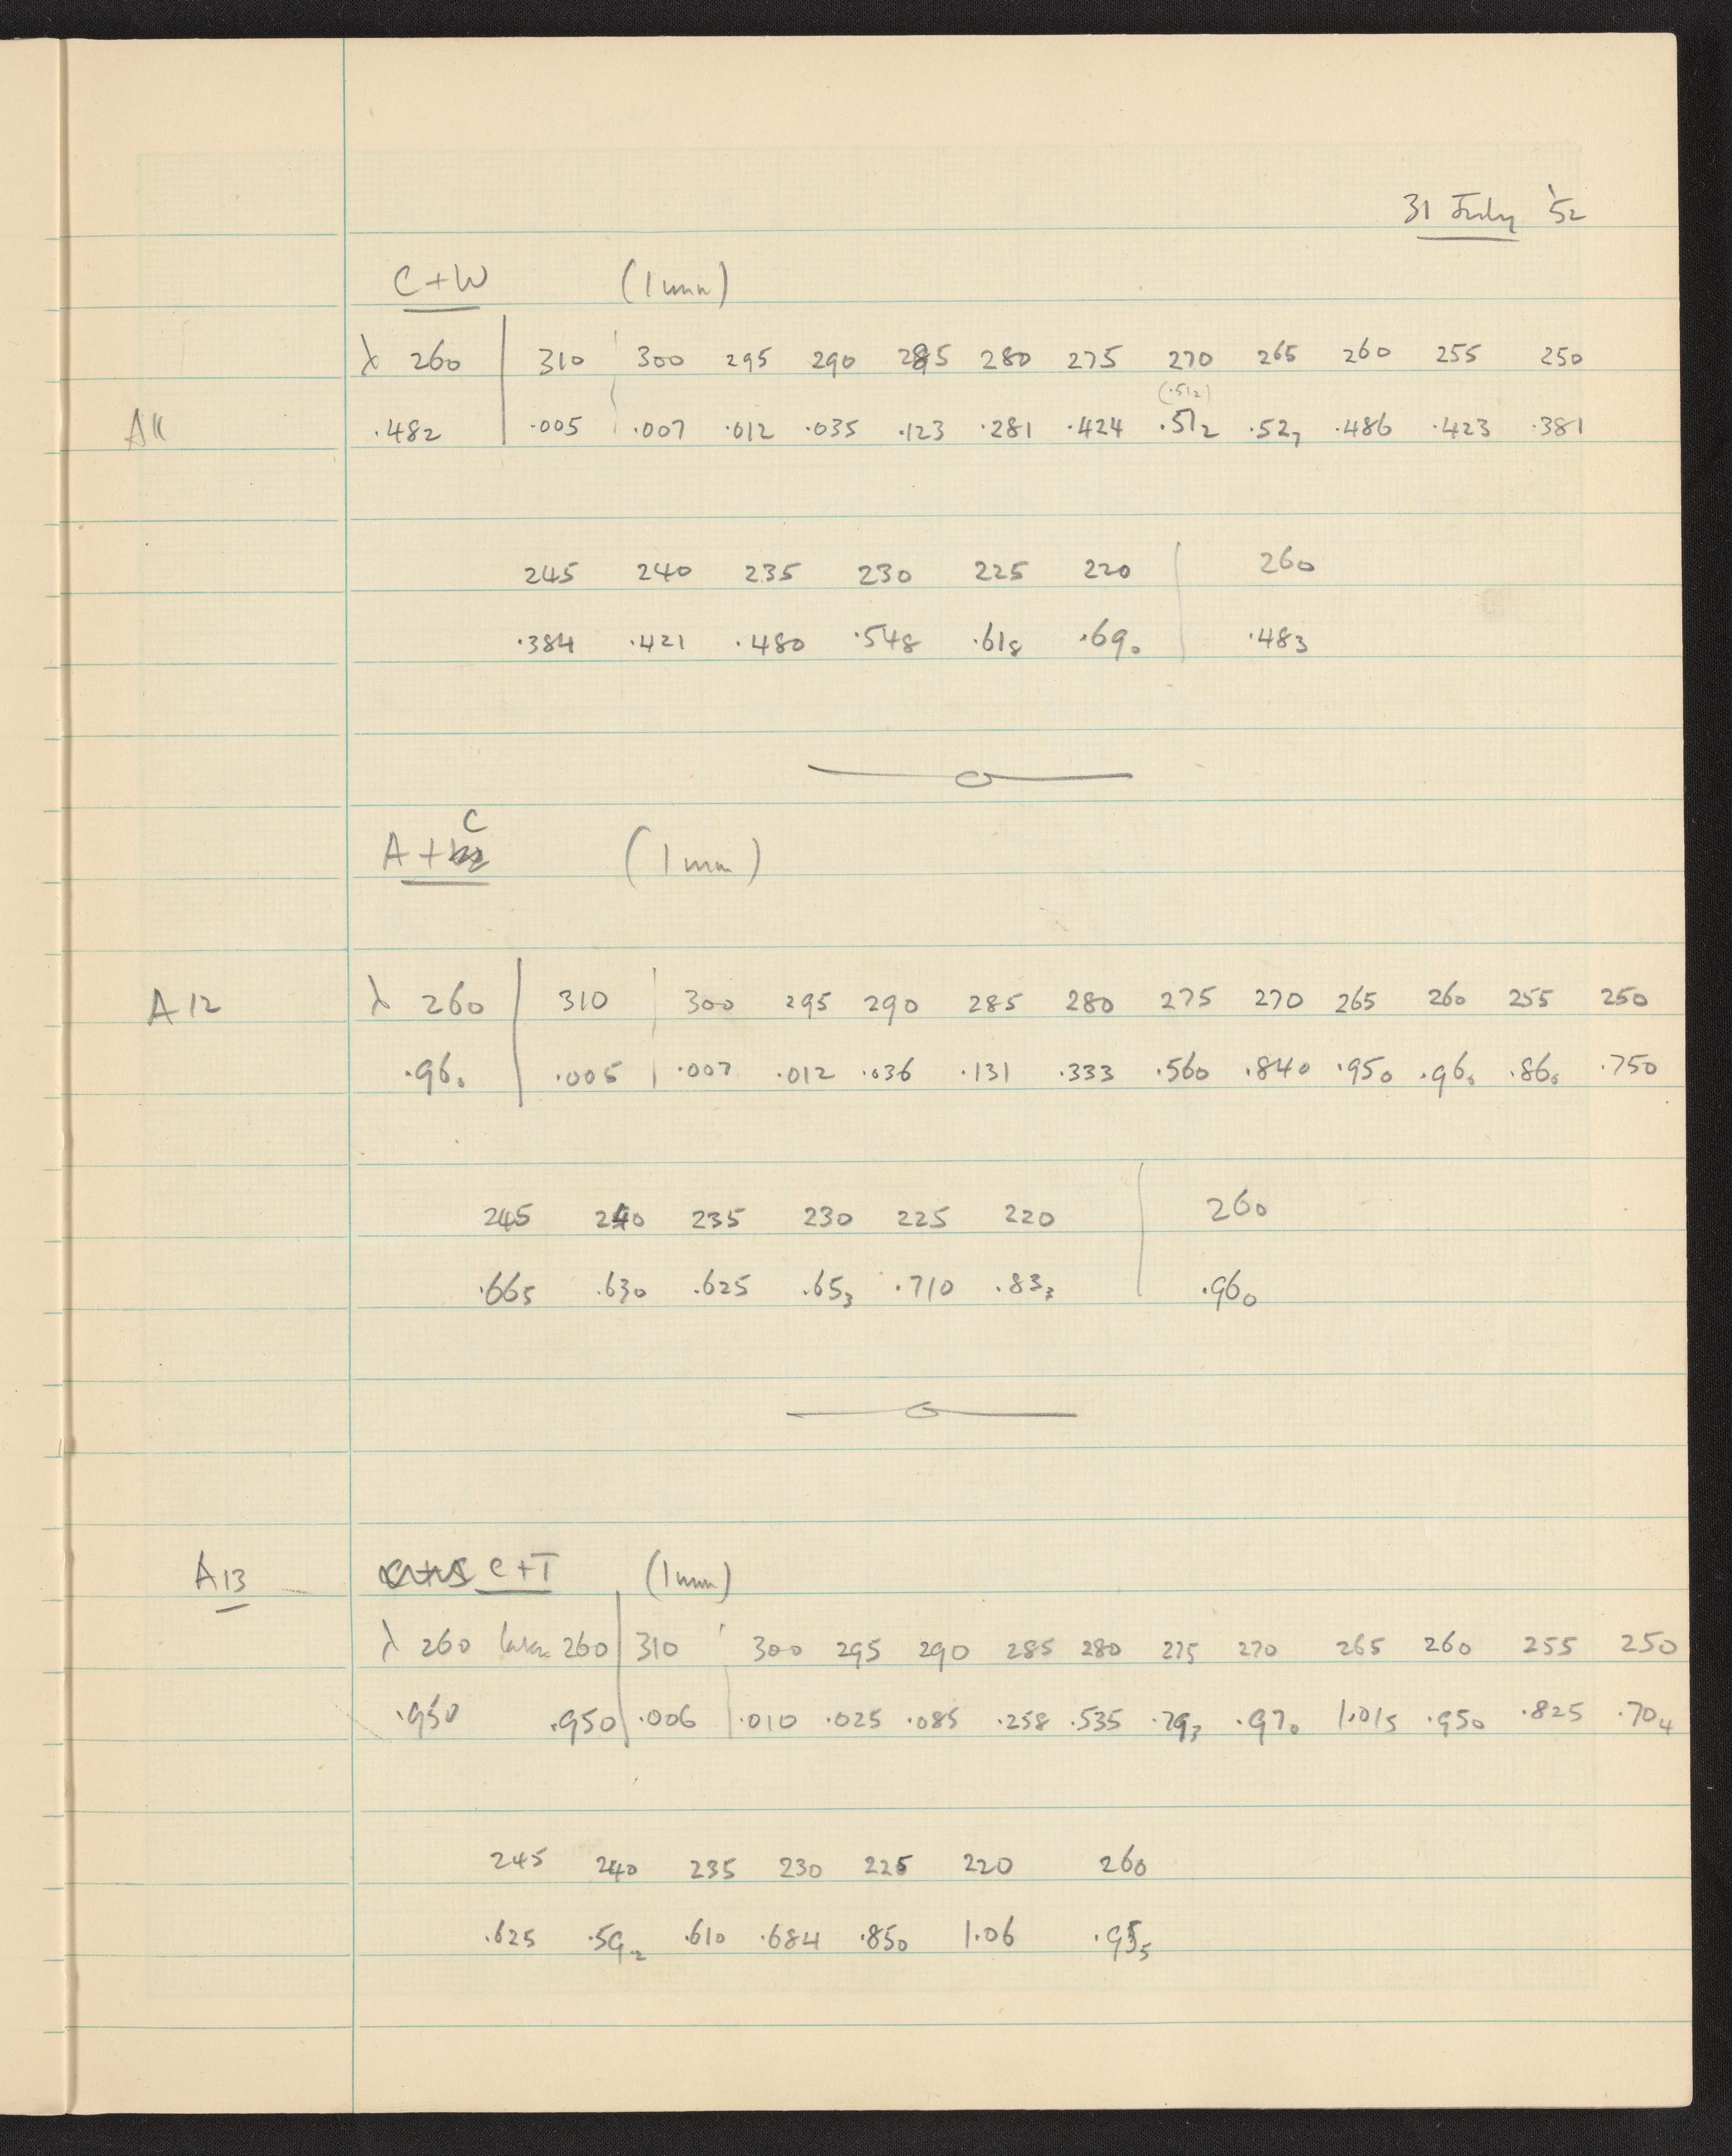 31 July '52
C+W (1mm)
λ 260 310 300 295 290 285 280 275 270 265 260 255 250
(.512)
A11 .482 .005 .007 .012 .035 .123 .281 .424 .512 .527 .486 .423 .381
245 240 235 230 225 220 260
.384 .421 .480 .548 .618 .690 .483
C
A+ (1mm)
A12 λ 260 310 300 295 290 285 280 275 270 265 260 255 250
.960 .005 .007 .012 .036 .131 .333 .560 .840 .950 .960 .860 .750
245 240 235 230 225 220 260
.665 .630 .625 .653 .710 .833 .960
A13 C+T (1mm)
λ 260 260 310 300 295 290 285 280 275 270 265 260 255 250
.950 .950 .006 .010 .025 .085 .258 .535 .793 .970 1.015 .950 .825 .704
245 240 235 230 225 220 260
.625 .592 .610 .684 .850 1.06 .955